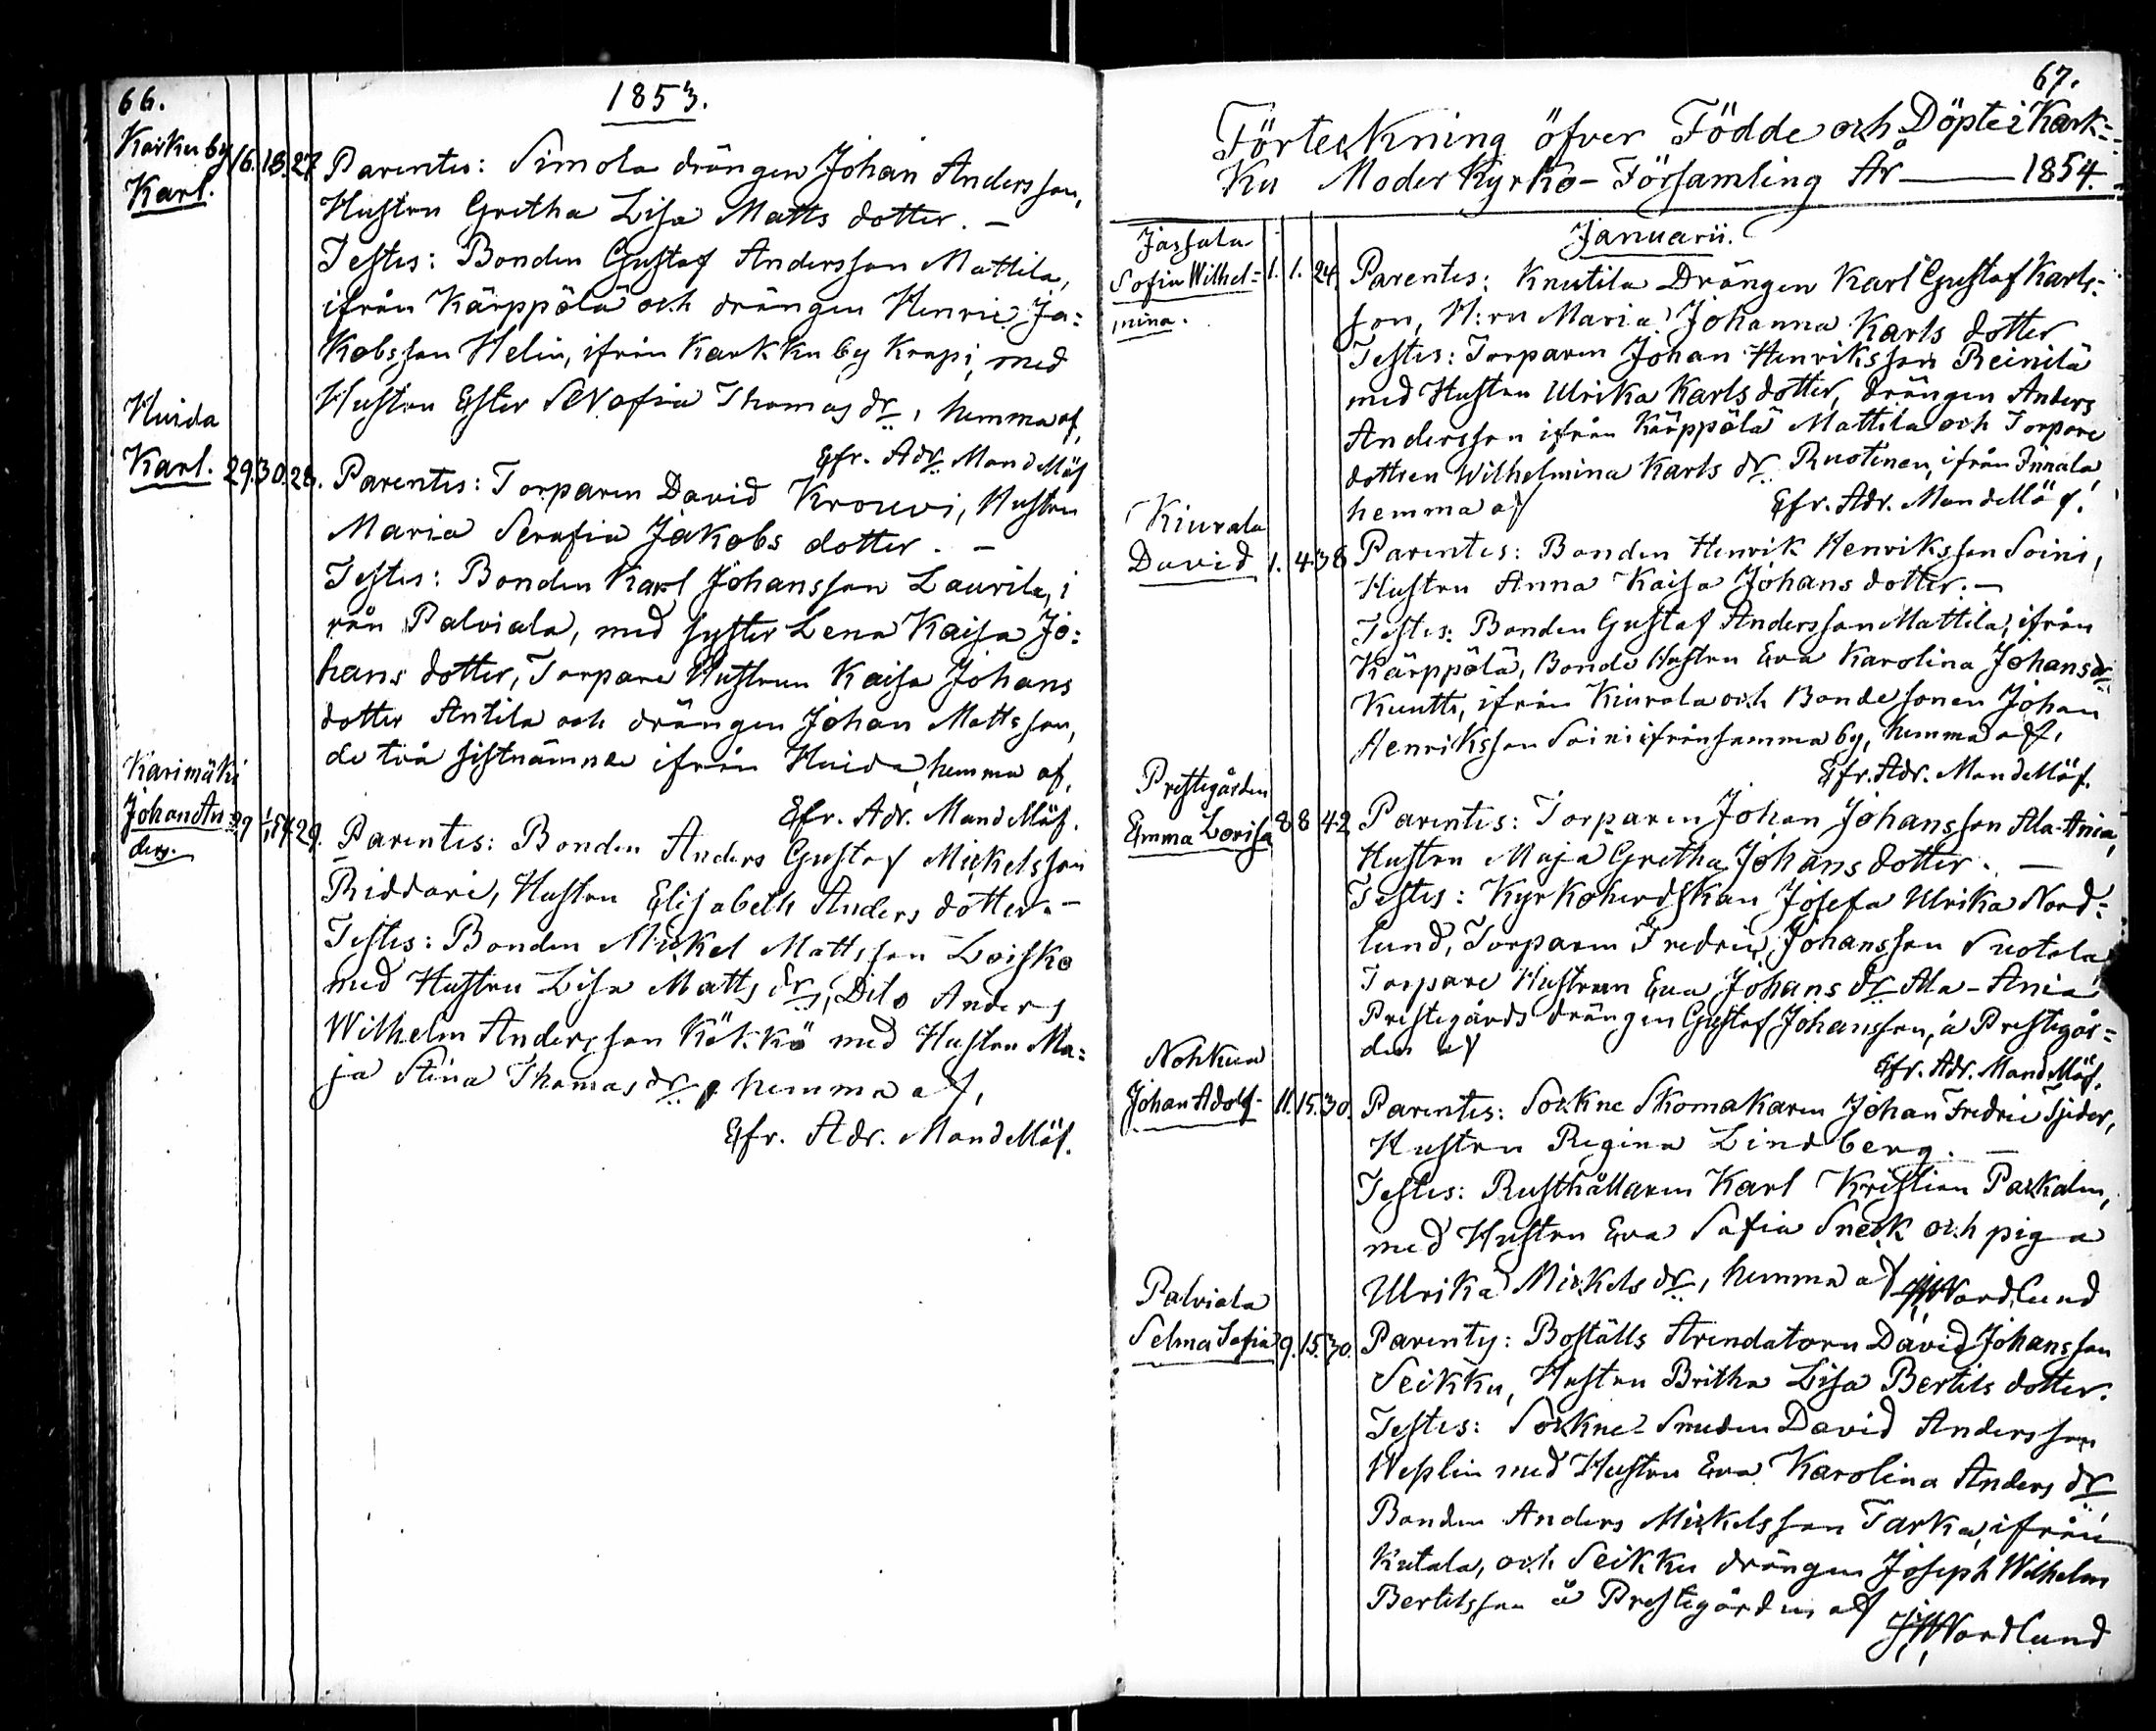 66.
1853.
Karkuby
Karl.
16. 18. 27
Parentes: Simola drängen Johan Andersson,
Hustru Gretha Lisa Matts dotter. –
Testes: Bonden Gustaf Andersson Mattila,
ifrån Kärppölä och drängen Henric Ja=
kobsson Helin, ifrån Karkku by Krapi, med
Hustru Ester Serafia Thomas dr, hemma af,
Efr. Adr. Mandellöf
Huida
Karl.
29. 30. 28.
Parentes: Torparen David Krouvi, Hustru
Maria Serafia Jakobs dotter. –
Testes: Bonden Karl Johansson Laurila, i
rån Palviala, med syster Lena Kaisa Jo=
hans dotter, Torpare Hustrun Kaisa Johans
dotter Antila och drängen Johan Mattsson,
de två sistnämnde ifrån Huida, hemma af,
Efr. Adr. Mandellöf.
Karimäki
Johan An=
ders.
29 1/1 54. 29.
Parentes: Bonden Anders Gustaf Mickelsson
Riddari, Hustru Elisabeth Anders dotter. –
Testes: Bonden Mickel Mattsson Loisko
med Hustru Lisa Matts dr, Dito Anders
Wilhelm Andersson Kökkö med Hustru Ma=
ja Stina Thomas dr, hemma af,
Efr. Adr. Mandellöf.
67.
Förteckning öfver Födde och Döpte i Kark=
ku Moder Kyrko-Församling År — 1854.
Januarii.
Jassala
Sofia Wilhel=
mina.
1. 1. 24.
Parentes: Knutila Drängen Karl Gustaf Karls=
son, H:ru Maria Johanna Karls dotter
Testes: Torparen Johan Henriksson Reinilä
med Hustru Ulrika Karls dotter, drängen Anders
Andersson ifrån Kärppölä Mattila och Torpare
dottren Wilhelmina Karls dr Ruotinen, ifrån Innala,
hemma af
Efr. Adr. Mandellöf.
Kiurala
David
1. 4. 38
Parentes: Bonden Henrik Henriksson Soini,
Hustru Anna Kaisa Johans dotter. –
Testes: Bonden Gustaf Andersson Mattila, ifrån
Kärppölä, Bonde Hustru Eva Karolina Johans dr
Kuutti, ifrån Kiurala och Bondesonen Johan
Henriksson Soini ifrån samma by, hemma af,
Efr. Adr. Mandellöf.
Prestegården
Emma Lovisa
8 8 42
Parentes: Torparen Johan Johansson Ala-Ania,
Hustru Maja Gretha Johans dotter. –
Testes: Kyrkoherdskan Josefa Ulrika Nord=
lund, Torparen Fredric Johansson Suotala
Torpare Hustrun Eva Johans dr Ala-Ania
Prestegårds drängen Gustaf Johansson, å Prestegår=
den af
Efr. Adr. Mandellöf.
Nohkua
Johan Adolf
11. 15. 30.
Parentes: Sockne Skomakaren Johan Fredric Tjeder,
Hustru Regina Lindberg. –
Testes: Rusthållaren Karl Kristian Packalen,
med Hustru Eva Sofia Sneck och piga
Ulrika Mickels dr, hemma af
Nordlund
Palviala
Selma Sofia
9. 15. 30.
Parentes: Boställs Arendatorn David Johansson
Seikku, Hustru Britha Lisa Bertils dotter.
Testes: Sockne Smeden David Andersson
Weplin med Hustru Eva Karolina Anders dr
Bonden Anders Mickelsson Tarka, ifrån
Kutala, och Seikku drängen Joseph Wilhelm
Bertilsson å Prestegården af
Nordlund